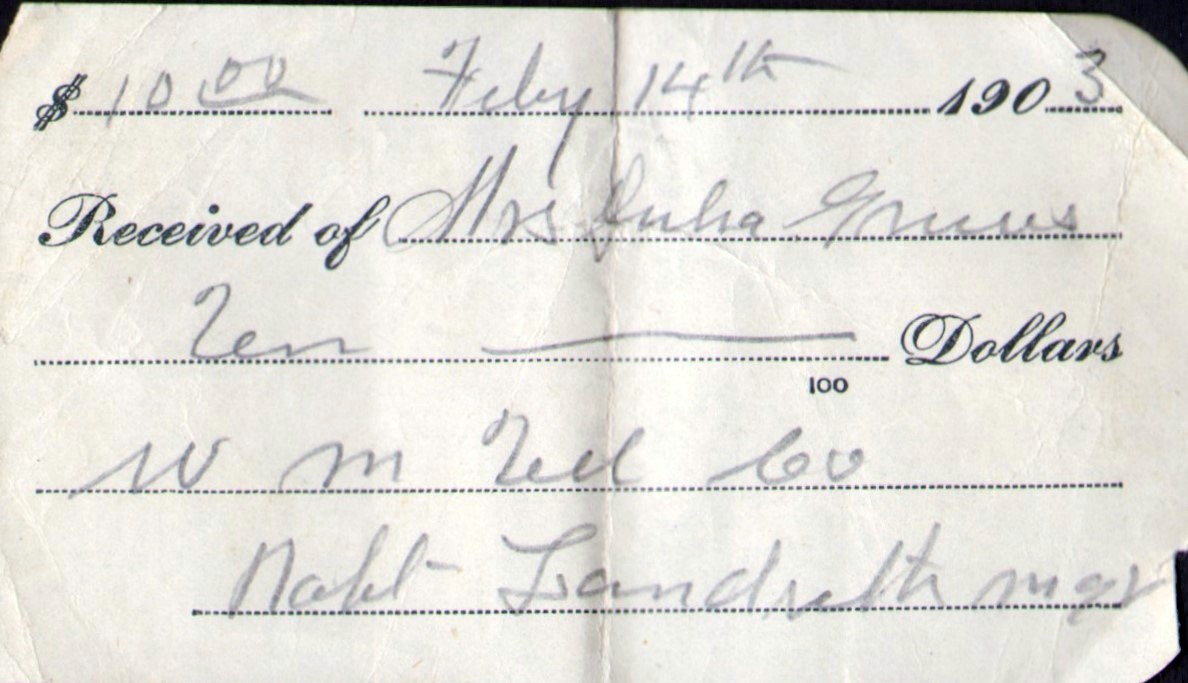 $ 10 00 Feby 14th 1903
Received of Mrs Julia
Ten Dollars
100
W M Tel Co
Robt Landreth mgr